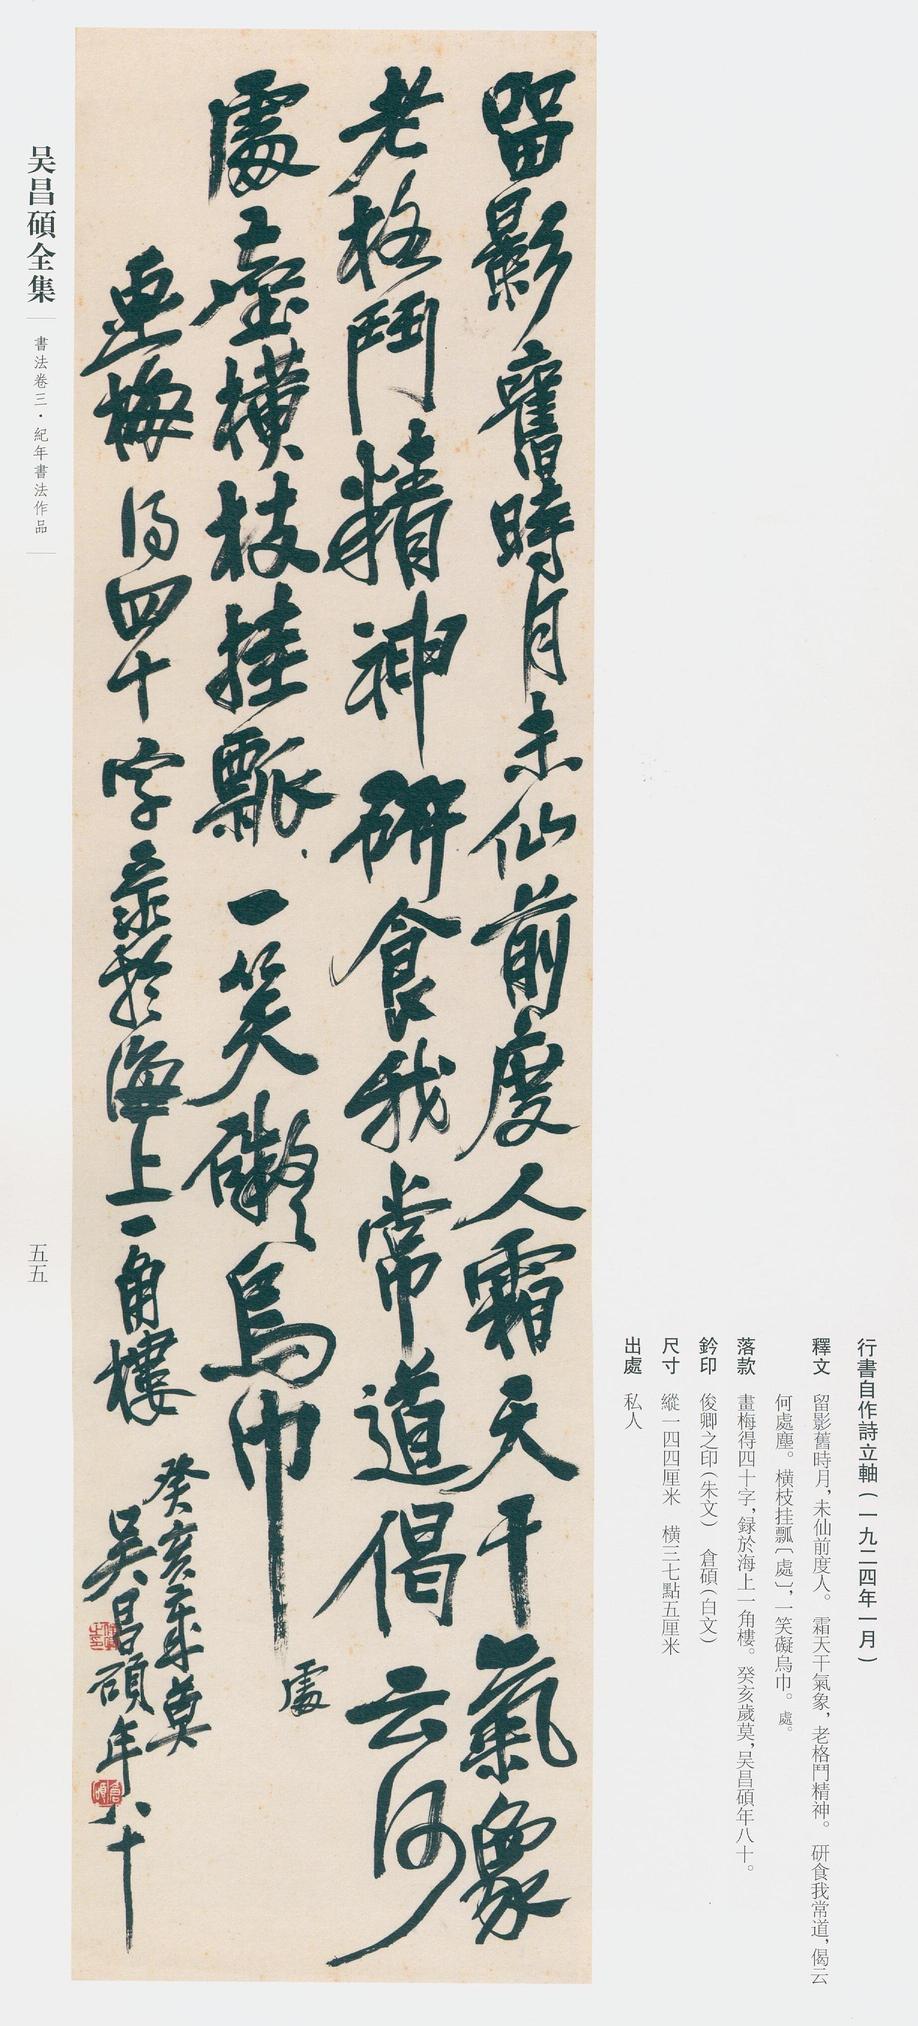 留影舊時月未仙前度人霜天干氣象
老格鬥精神研食我常道偈云何
處臺橫枝挂瓢一笑礙烏巾
處
畫梅得四十字录於海上一角樓
癸亥歲莫
吴昌碩年八十
行書自作詩立軸（一九二四年一月）
釋文 留影舊時月，未仙前度人。霜天干氣象，老格鬥精神。研食我常道，偈云
何處塵。橫枝挂瓢〔處〕，一笑礙烏巾。處。
落款 畫梅得四十字，録於海上一角樓。癸亥歲莫，吴昌碩年八十。
鈐印 俊卿之印（朱文） 倉碩（白文）
尺寸 縱一四四厘米 橫三七點五厘米
出處 私人
吴昌碩全集
書法卷三·紀年書法作品
五五